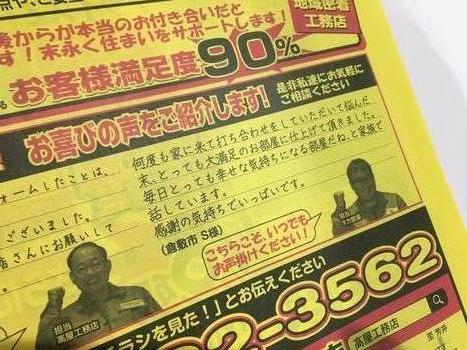 後からが本当のお付き合いだと
す！末永く住まいをサポートします！
地域密着
工務店
お客様満足度90%
お喜びの声をご紹介します！
是非私達にお気軽に
ご相談ください
何度も家に来て打ち合わせをしていただいて悩んだ
末、とっても大満足のお部屋に仕上げて頂きました。
毎日とっても幸せな気持ちになる部屋だね、と家族で
話しています。
感謝の気持ちでいっぱいです。
(倉敷市 S様)
ォームしたことは、
ございました。
店さんにお願いして
こちらこそ、いつでも
お声掛けください！
担当
高屋工務店
ラシを見た！」とお伝えください
2-3562
高屋工務店